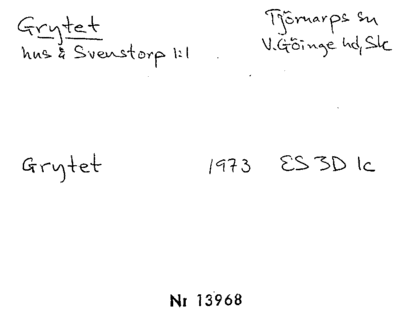 Grytet
Tjörnarps sn
hus å Svenstorp 1:1
V. Göinge hd, Sk
Grytet 1973 ES 3D 1c
Nr 13968